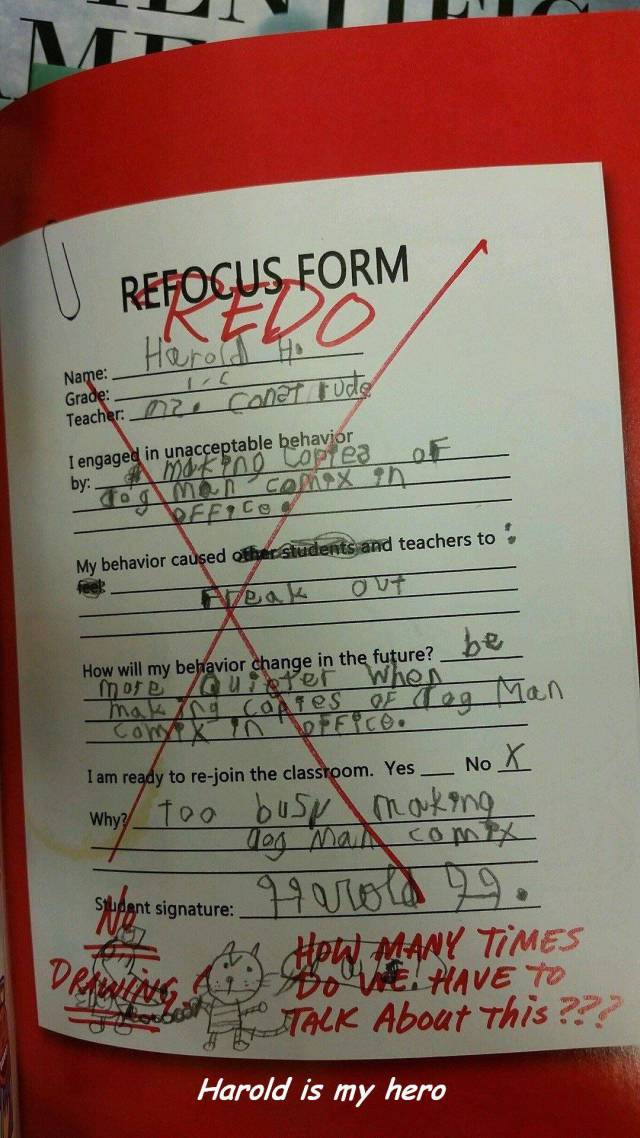 REFOCUS FORM
REDO
Name: Harold H.
Grade:
Teacher: mz. Construde
I engaged in unacceptable behavior
by: making copies of
dog man comix in
office.
My behavior caused other students and teachers to :
feel:
Freak out
How will my behavior change in the future? be
more quieter when
making copies of dog Man
comix in office.
I am ready to re-join the classroom. Yes ___ No X
Why? too busy making
dog Man comix
Student signature: Harold H.
No
DRAWING!
HOW MANY TiMES
Do WE HAVE TO
TALK About This???
Harold is my hero